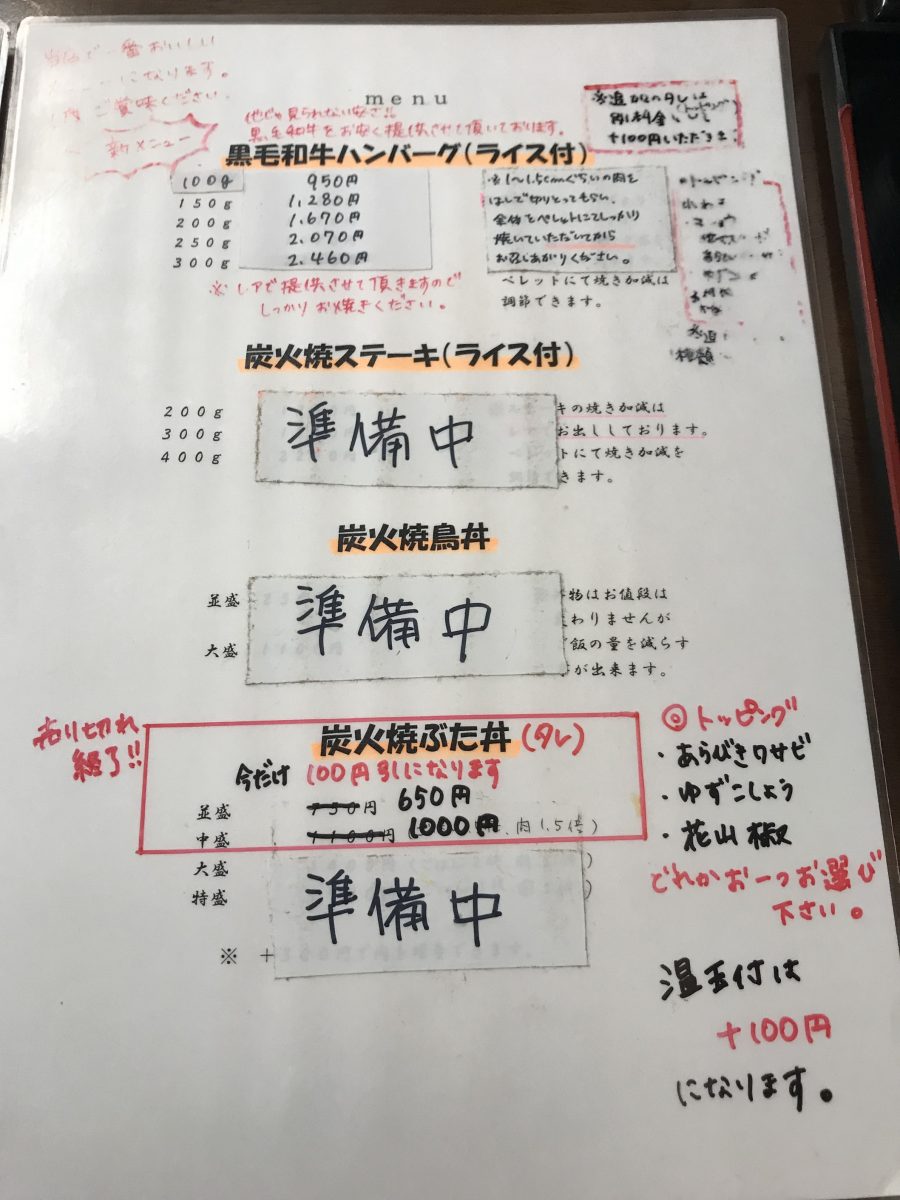 一番おいしい
になります。
ご賞味ください。
新メニュー
menu
他じゃ見られない安さ!!
黒毛和牛をお安く提供させて頂いております。
※追加のタレは
別料金
+100円いただきま
黒毛和牛ハンバーグ(ライス付)
100g 950円
150g 1,280円
200g 1.670円
250g 2.070円
300g 2.460円
※1〜1.5cmぐらいの肉を
はしで切りとってもらい、
全体をペレットにてしっかり
焼いていただいてから
お召しあがりください。
ペレットにて焼き加減は
調節できます。
※レアで提供させて頂きますので
しっかりお焼きください。
種類
炭火焼ステーキ(ライス付)
200g
300g
400g
準備中
キの焼き加減は
お出ししております。
トにて焼き加減を
きます。
炭火焼鳥丼
並盛
大盛
準備中
物はお値段は
わりませんが
飯の量を減らす
が出来ます。
売り切れ
終了!!
炭火焼ぶた丼(タレ)
今だけ 100円引になります
並盛 750円 650円
中盛 1100円 1000円 、肉1.5倍)
大盛
特盛
準備中
※ +
◎トッピング
・あらびきワサビ
・ゆずこしょう
・花山椒
どれかお一つお選び
下さい。
温玉付は
+100円
になります。